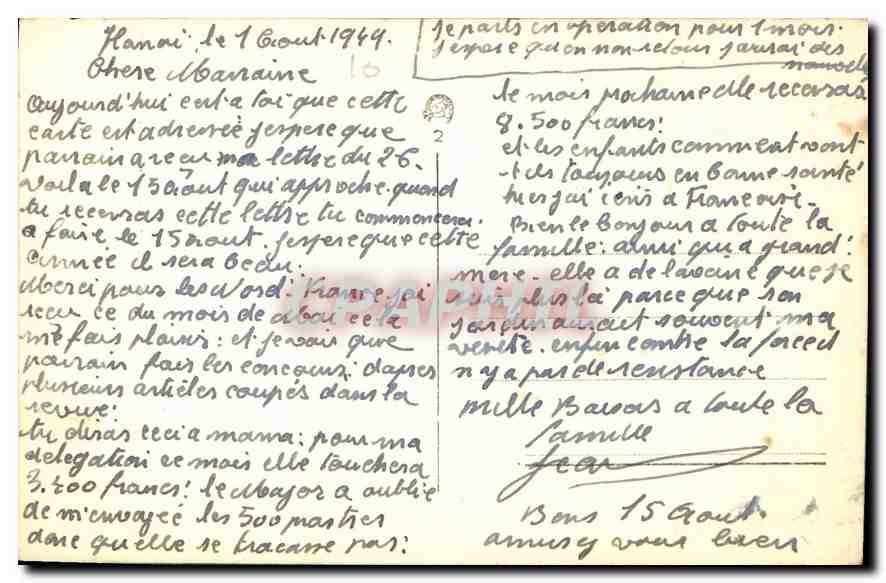 Hanoï, le 1 Aout 1949.
Chere Marraine
Aujourd'hui est a toi que cette
carte est adressée j'espere que
parrain a recu ma lettre du 26.
Voila le 15 Aout qui approche. quand
tu recevras cette lettre tu commencera
a faire le 15 aout. j'espere que cette
année il sera beau.
Merci pour les Nord-France j'ai
recu ce du mois de cela
me fais plaisir: et je vois que
parrain fais les concours: d'apres
plusieurs articles coupés dans la
revue!
tu diras ceci a mama: pour ma
delegation ce mois elle touchera
3.400 francs! le Major a oublié
de m'envoyée les 500 piastres
donc qu'elle se tracasse pas:
je parts en operation pour 1 mois.
j'espere qu'on mon retour j'aurai des
nouvelles
le mois prochaine elle recevra
8.500 francs!
et les enfants comment vont
-t-ils toujours en bonne santé
hier j'ai écris a Francoise.
Bien le bonjour a toute la
famille: ainsi qu'a grand!
mere. elle a de la veine que je
suis plus là parce que son
jardin aurait souvent ma
visite. enfin contre la force il
n'y a pas de resistance
Mille Baisers a toute la
famille
Jean
Bons 15 Aout.
amusez vous bien
2
10
CPAPHIL